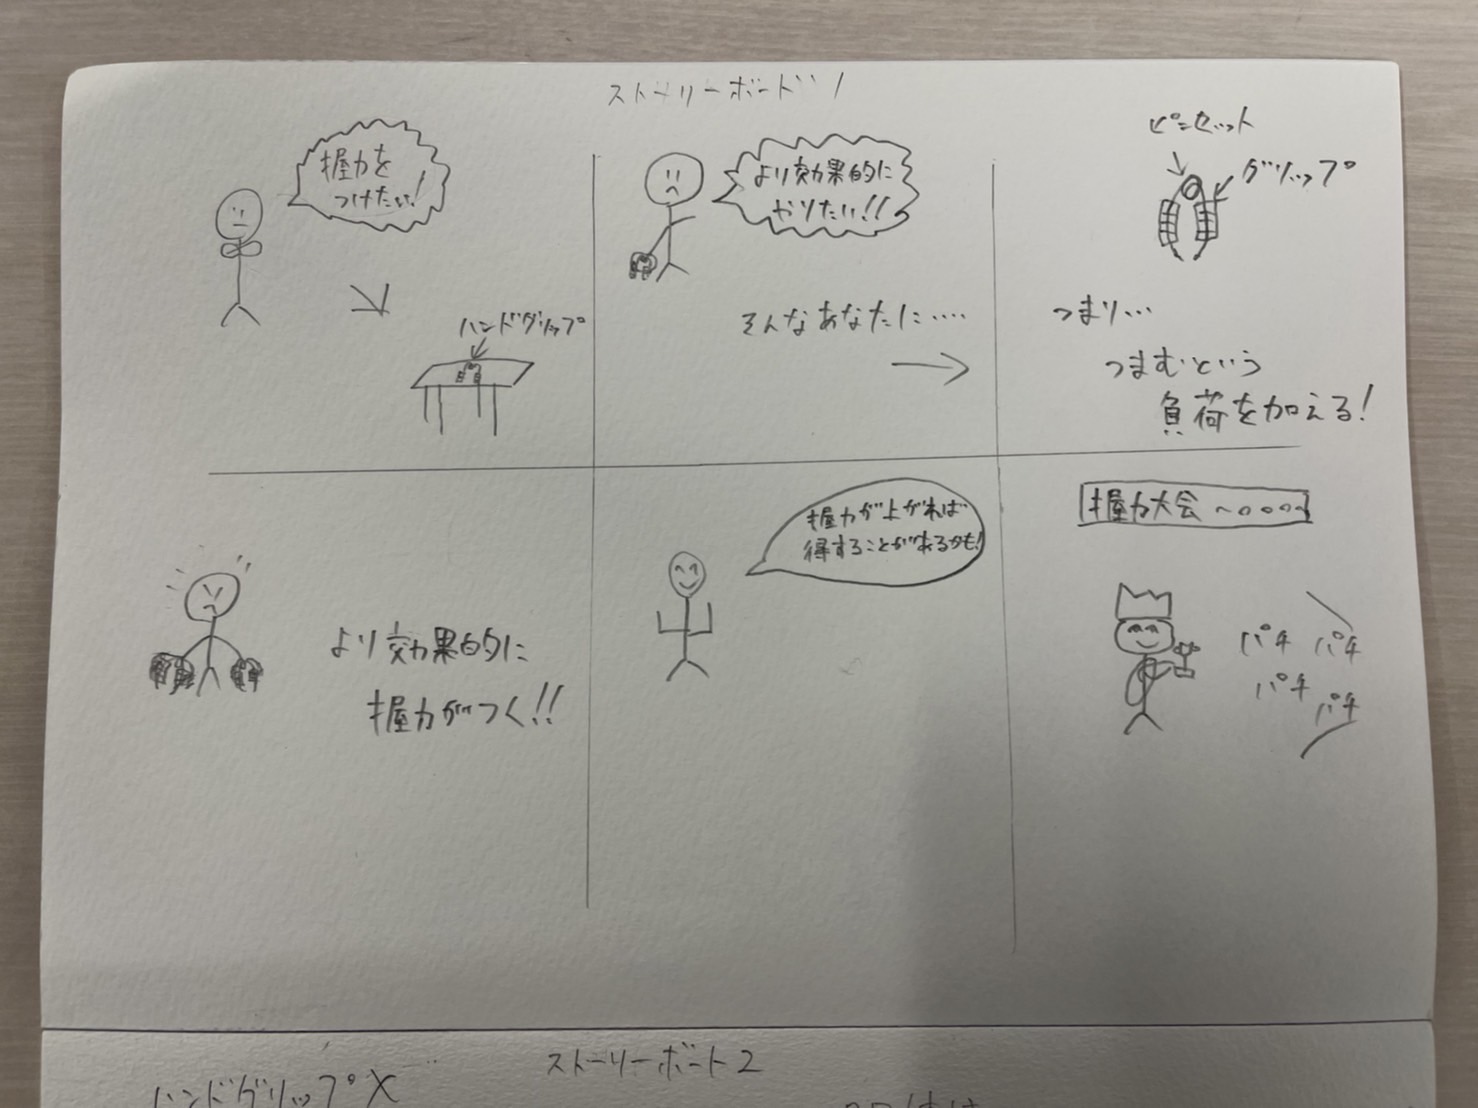 ストーリーボード1
握力を
つけたい!
ハンドグリップ
より効果的に
やりたい!!
そんなあなたに‥‥
ピンセット
グリップ
つまり…
つまむという
負荷を加える!
より効果的に
握力がつく!!
握力が上がれば
得することがあるかも!
握力大会
パチ パチ
パチ
パチ
ストーリーボード2
ハンドグリップ×